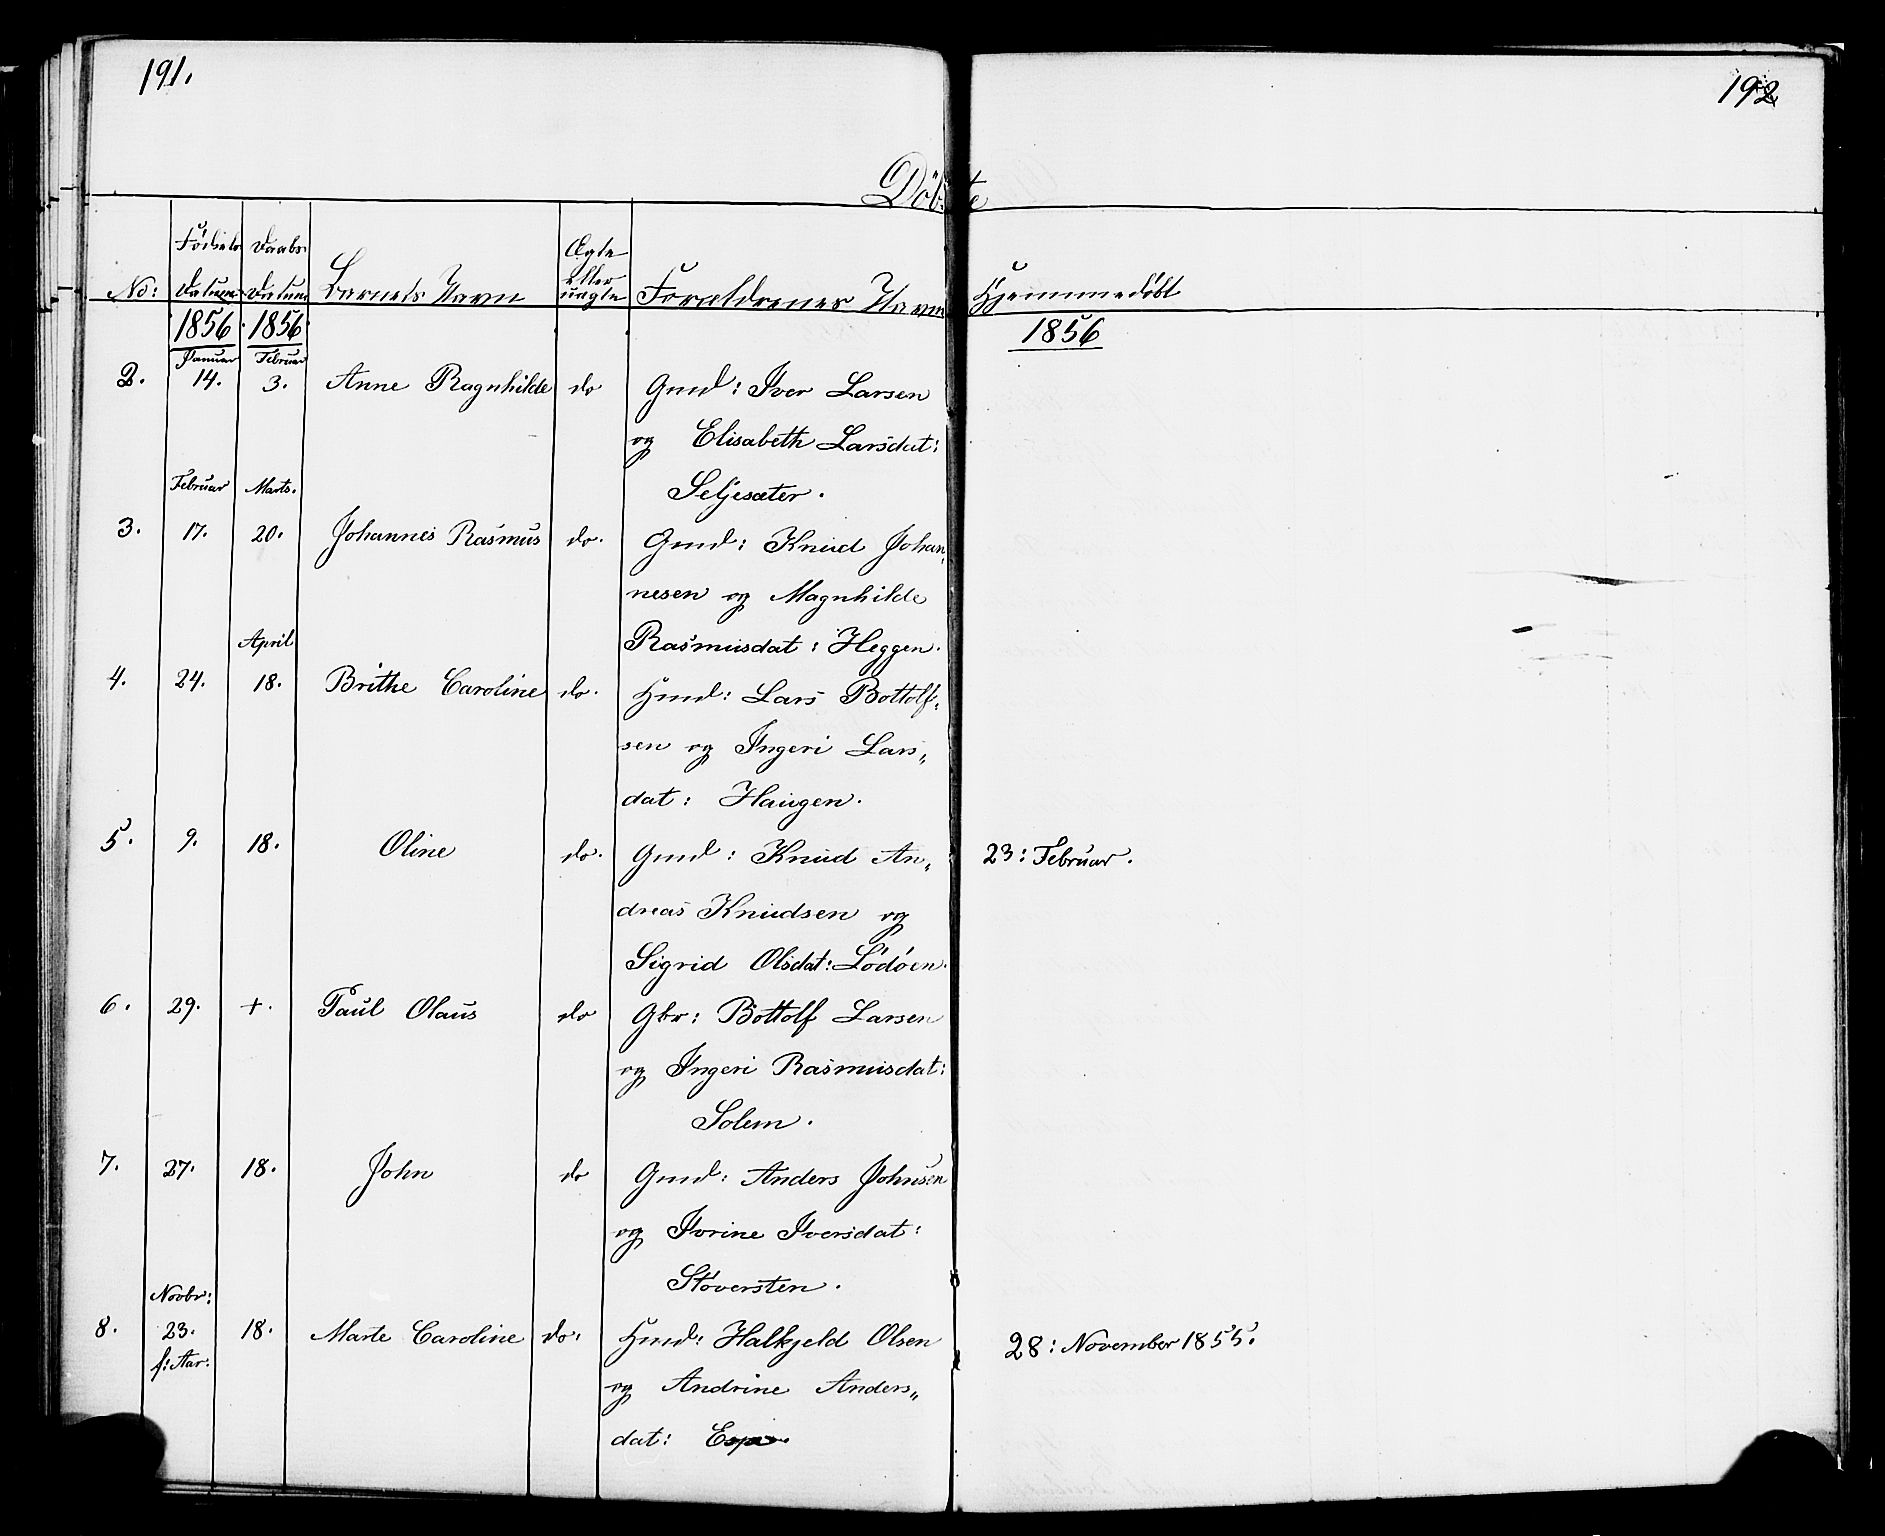 191.
192
Döbte
No: Födsels Datum Daabs Datum Barnets Navn Ægte eller uægte Forældrenes Navn Hjemmedöbt
1856 1856 1856
Januar Februar
2. 14. 3. Anne Ragnhilde do Gmd: Iver Larsen
og Elisabeth Larsdat:
Seljesæter.
Februar Marts.
3. 17. 20. Johannes Rasmus do. Gmd: Knud Johan,,
nesen og Magnhilde
Rasmusdat: Heggen.
April
4. 24. 18. Brithe Caroline do. Hmd: Lars Bottolf,,
sen og Ingeri Lars,,
dat: Haugen.
5. 9. 18. Oline do. Gmd: Knud An,, 23: Februar.
dreas Knudsen og
Sigrid Olsdat: Lödöen.
6. 29. +. Paul Olaus do Gbr: Bottolf Larsen
og Ingeri Rasmusdat:
Solem.
7. 27. 18. John do Gmd: Anders Johnsen
og Ivrine Iversdat:
Stöversten.
Novbr:
8. 23. 18. Marte Caroline do. Hmd: Halkjeld Olsen 28: November 1855.
f: Aar:
og Andrine Anders,,
dat: